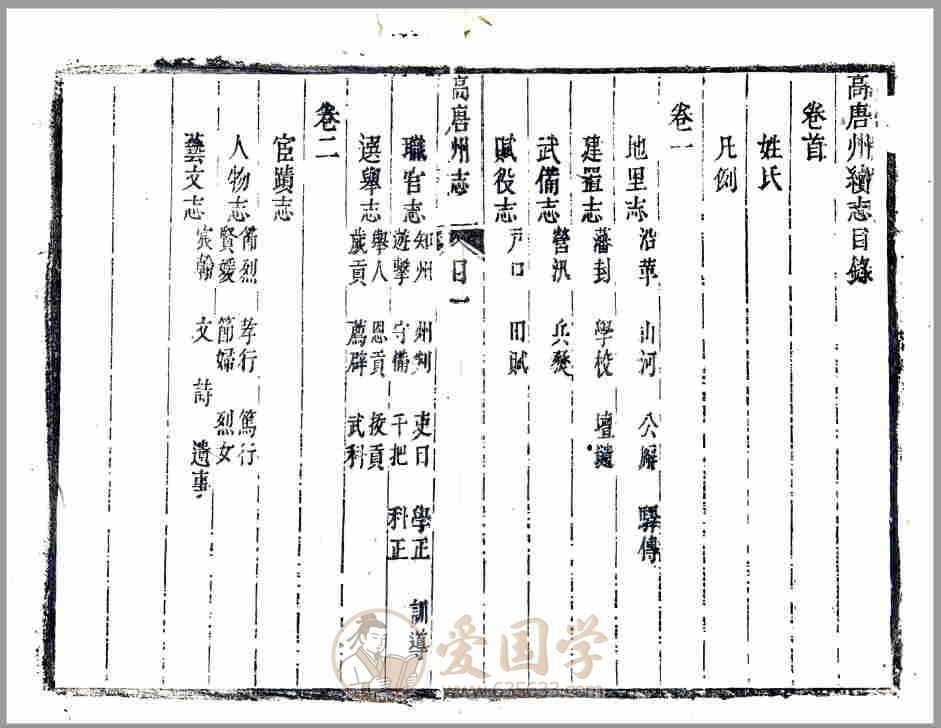 高唐州續志目錄
卷首
姓氏
凡例
卷一
地里志 沿革 山河 公廨 驛傳
建置志 藩封 學校 壇
武備志 營汛 兵燹
賦役志 戶口 田賦
高唐州志 目一
職官志 知州 州判 吏目 學正 訓導
遊擊 守備 千把 科正
選舉志 舉人 恩貢 拔貢
歲貢 薦辟 武科
卷二
宦蹟志
人物志 節烈 孝行 篤行
賢媛 節婦 烈女
藝文志 宸翰 文 詩 遺事
爱国学
www.635533.com